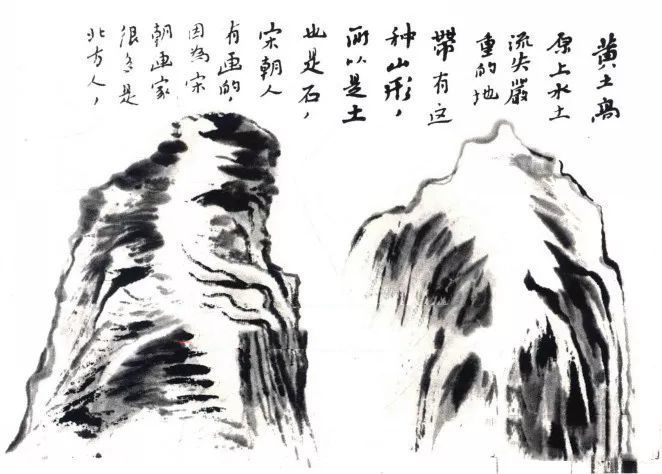 黄土高
原上水土
流失嚴
重的地
帶有这
种山形，
所以是土
也是石，
宋朝人
有画的，
因為宋
朝画家
很多是
北方人，